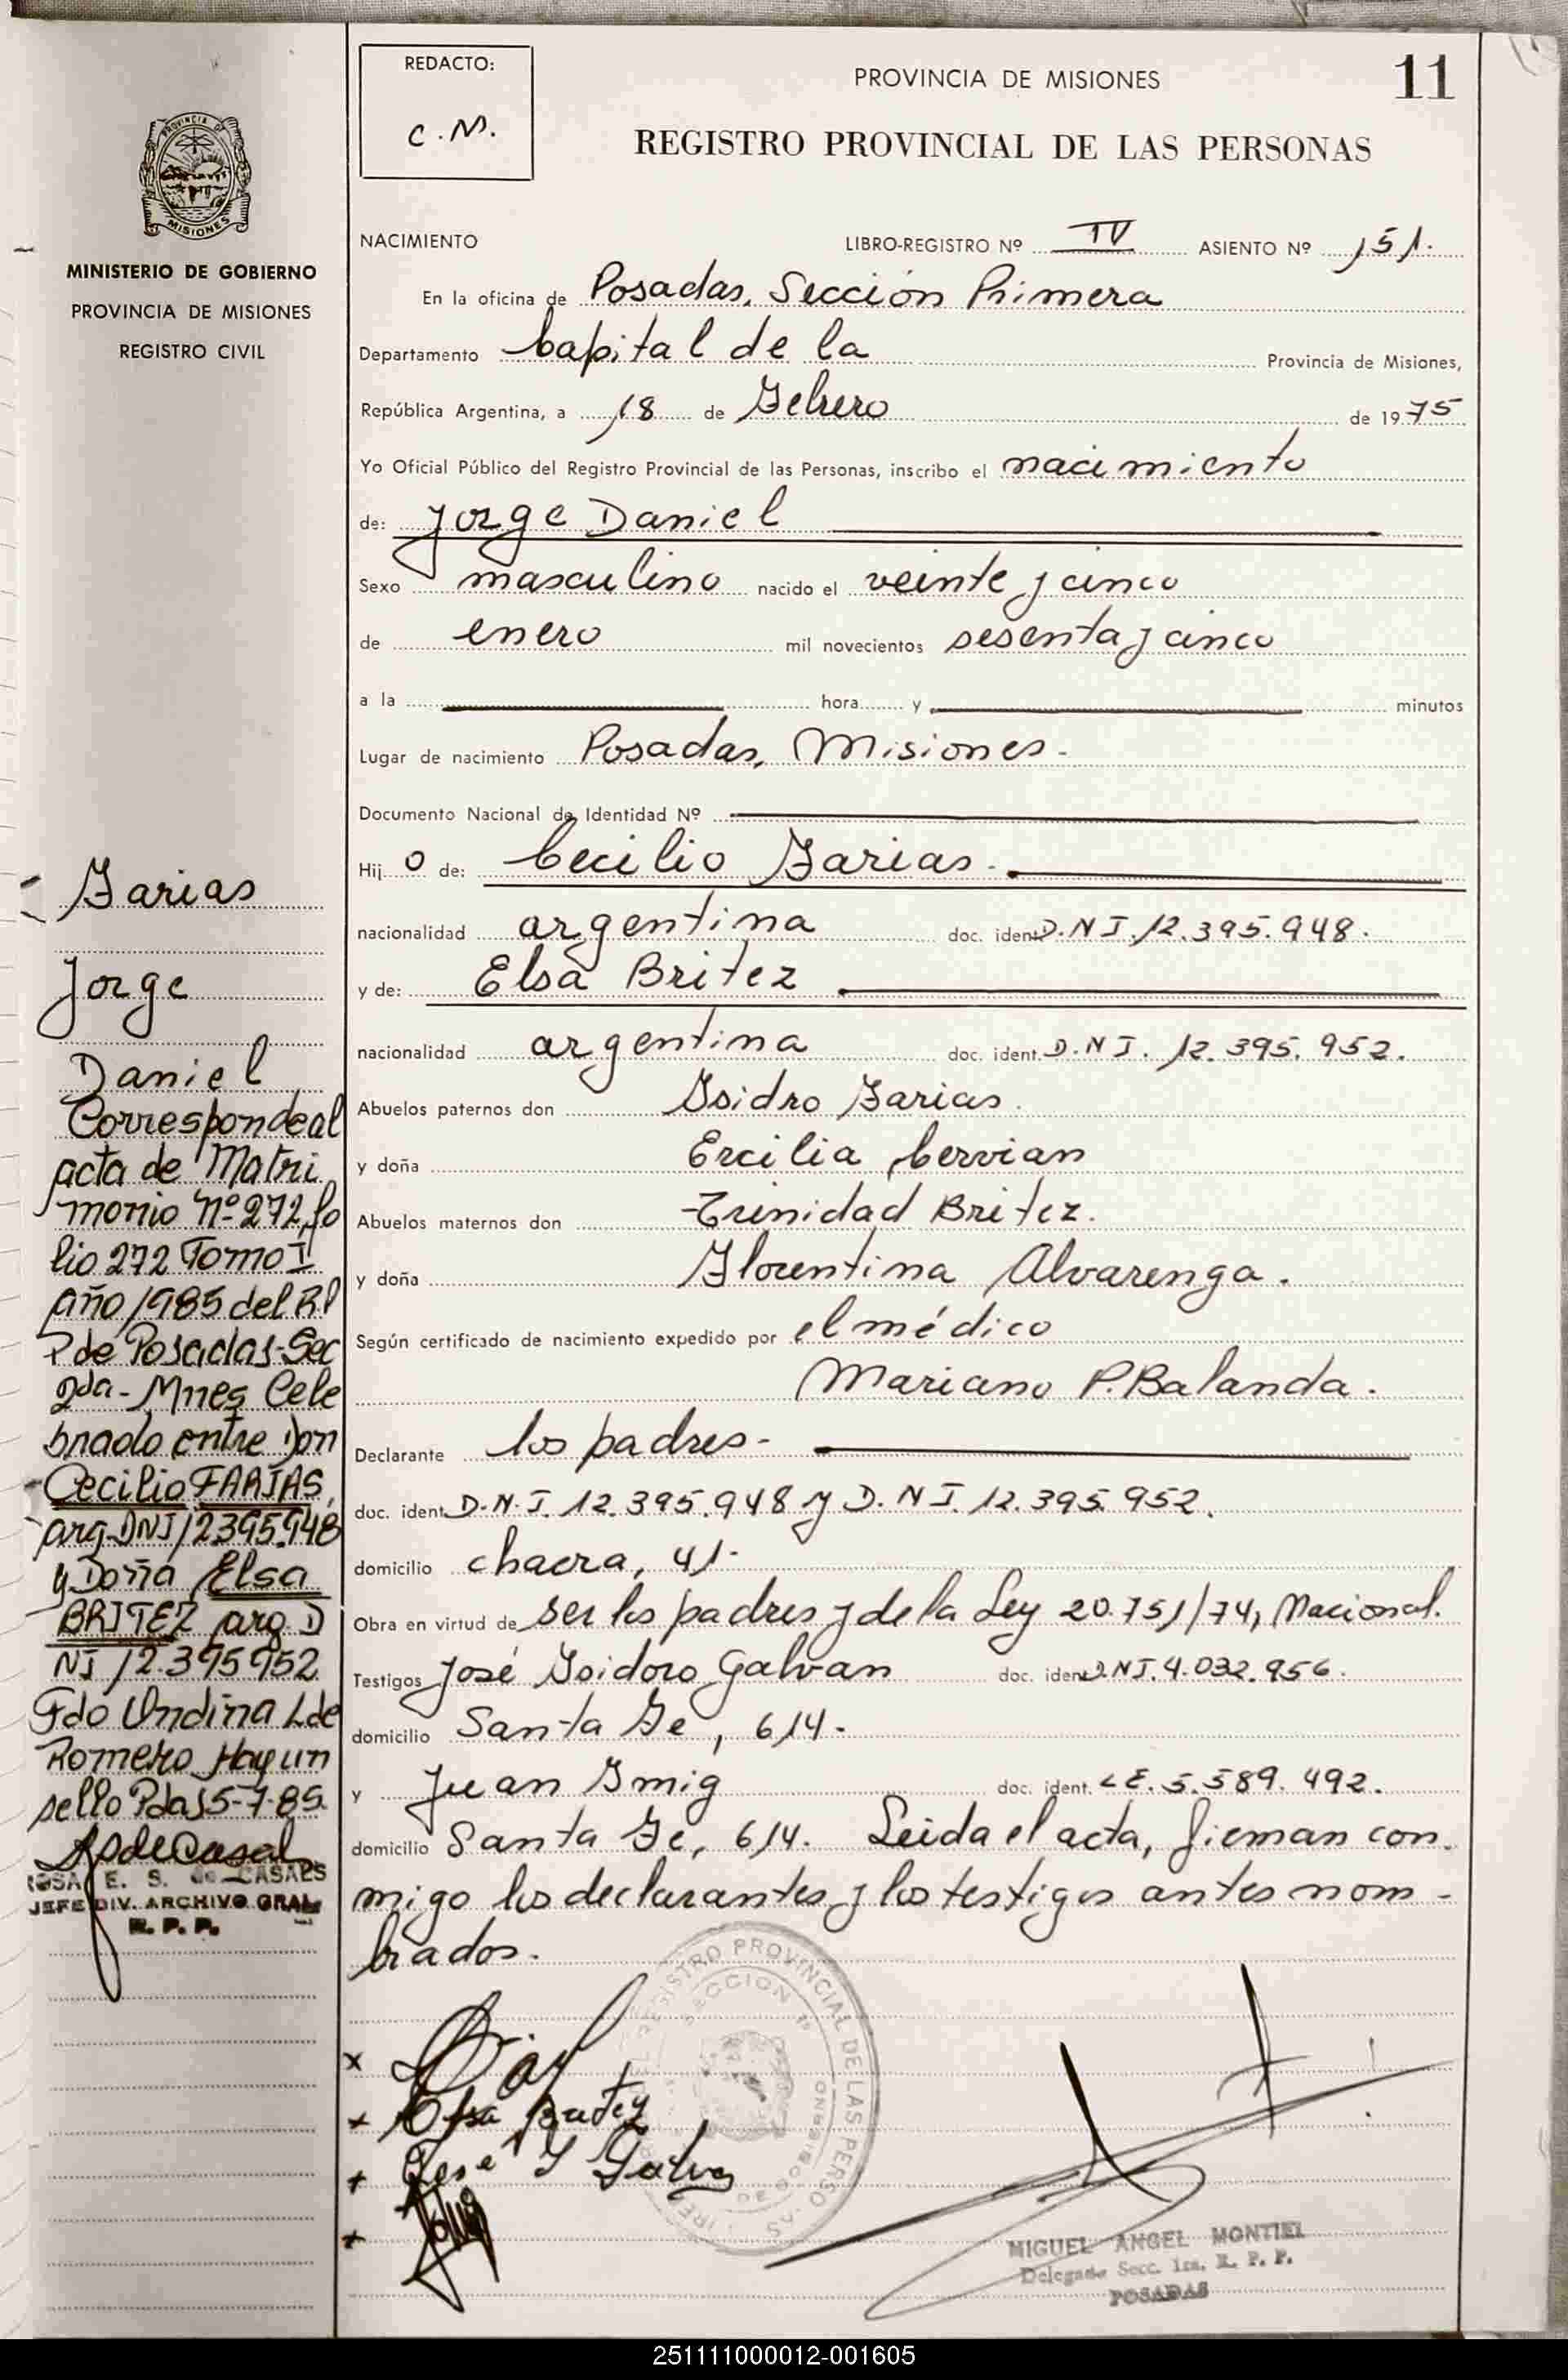 REDACTO:
C.M.
PROVINCIA DE MISIONES
11
REGISTRO PROVINCIAL DE LAS PERSONAS
NACIMIENTO LIBRO-REGISTRO Nº IV ASIENTO Nº 151.
En la oficina de Posadas, Sección Primera
Departamento Capital de la Provincia de Misiones,
República Argentina, a 18 de Febrero de 1975
Yo Oficial Público del Registro Provincial de las Personas, inscribo el nacimiento
de: Jorge Daniel
Sexo masculino nacido el veinte y cinco
de enero mil novecientos sesenta y cinco
a la hora y minutos
Lugar de nacimiento Posadas, Misiones.-
Documento Nacional de Identidad Nº
Hijo de: Cecilio Farias.-
nacionalidad argentina doc. ident. D.N.I. 12.395.948.
y de: Elsa Britez
nacionalidad argentina doc. ident. D.N.I. 12.395.952.
Abuelos paternos don Isidro Farias.
y doña Ercilia Cervian
Abuelos maternos don Trinidad Britez.
y doña Florentina Alvarenga.
Según certificado de nacimiento expedido por el médico
Mariano P. Balanda.
Declarante los padres-
doc. ident. D.N.I. 12.395.948 y D.N.I. 12.395.952.
domicilio chacra, 41-
Obra en virtud de ser los padres y de la Ley 20.751/74, Nacional.
Testigos José Isidoro Galvan doc. ident. D.N.I. 4.032.956.
domicilio Santa Fe, 614-
y Juan Smig doc. ident. L.E. 5.589.492.
domicilio Santa Fe, 614. Leida el acta, firman con-
migo los declarantes y los testigos antes nom-
brados.-
Elsa Britez
José I Galvan
REGISTRO PROVINCIAL DE LAS PERSONAS
SECCION 1ª
MIGUEL ANGEL MONTIEL
Delegado Secc. 1ra. R. P. P.
POSADAS
PROVINCIA D
MISIONES
MINISTERIO DE GOBIERNO
PROVINCIA DE MISIONES
REGISTRO CIVIL
Farias
Jorge
Daniel
Corresponde al
acta de Matri
monio Nº 272, fo
lio 272 Tomo I
año 1985 del R.P
P de Posadas-Sec
2da- Mnes Cele
brado entre Don
Cecilio FARIAS,
arg. DNI 12395.948
y Doña Elsa
BRITEZ arg. D
NI 12.395952
Fdo Undina L de
Romero Hay un
sello Pdas 5-7-85.
ROSA E. S. de CASALS
JEFE DIV. ARCHIVO GRAL
R. P. P.
251111000012-001605